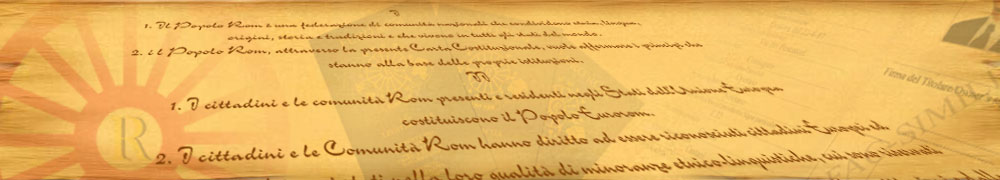 I
1. Il Popolo Rom è una federazione di comunità nazionali che condividono storia, lingua,
origini, storia e tradizioni e che vivono in tutti gli stati del mondo.
2. il Popolo Rom, attraverso la presente Carta Costituzionale, vuole affermare i principi che
stanno alla base delle proprie istituzioni.
II
1. I cittadini e le comunità Rom presenti e residenti negli Stati dell'Unione Europea
costituiscono il Popolo Eurorom.
2. I cittadini e le Comunità Rom hanno diritto ad essere riconosciuti cittadini Europei ed
nella loro qualità di minoranze etnico linguistiche,
R
Firma del Titolare
FAC SIMILE